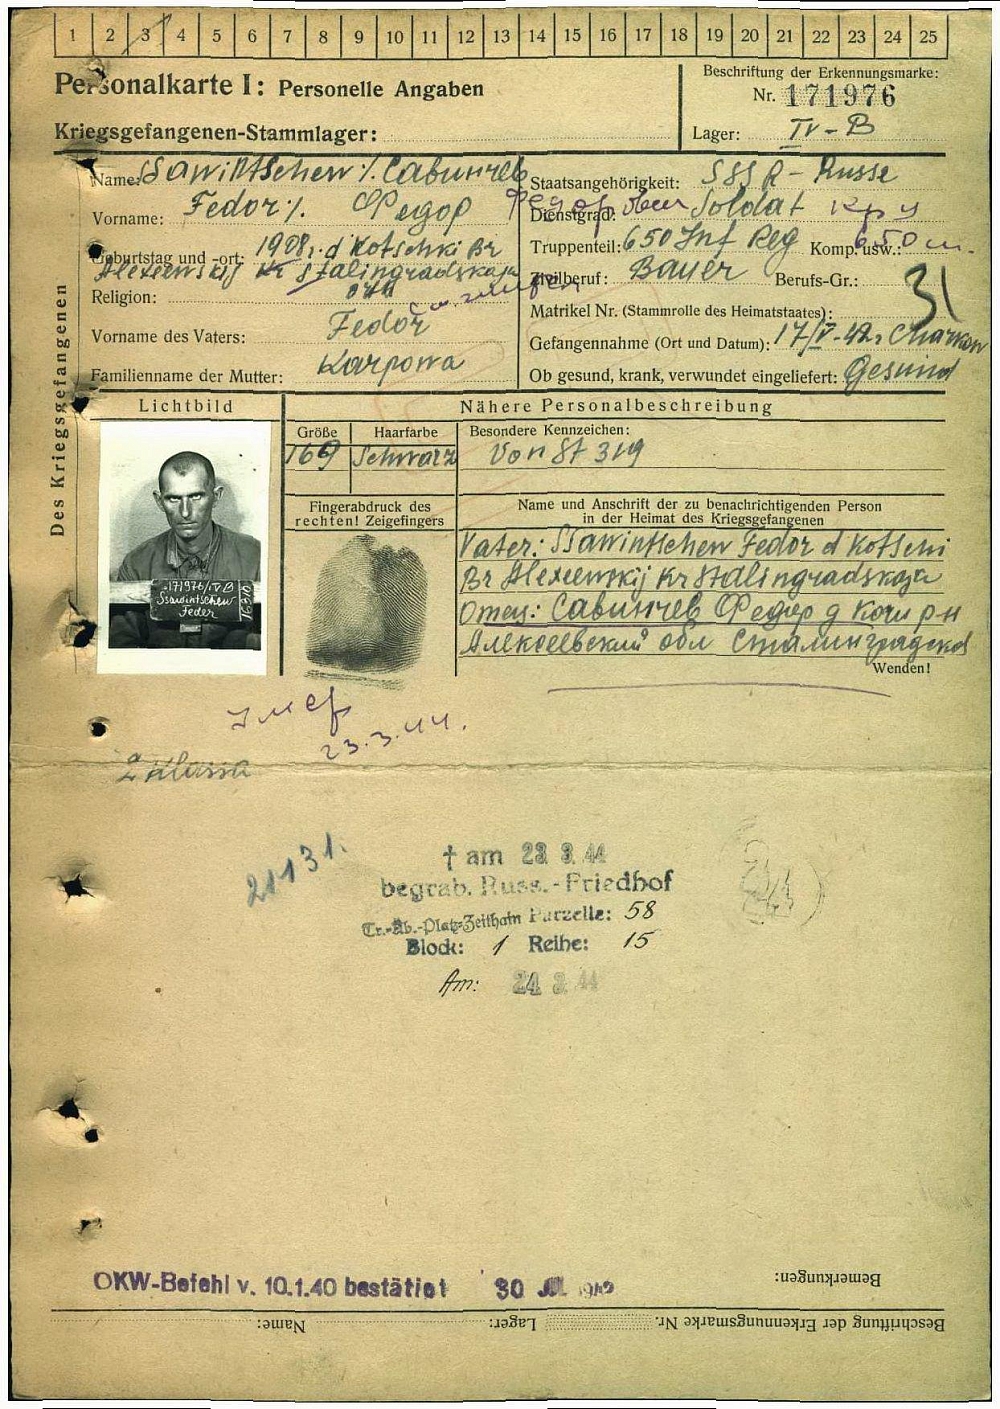 1 2 3 4 5 6 7 8 9 10 11 12 13 14 15 16 17 18 19 20 21 22 23 24 25
Personalkarte I: Personelle Angaben
Beschriftung der Erkennungsmarke:
Nr. 171976
Kriegsgefangenen-Stammlager:
Lager: IV-B
Des Kriegsgefangenen
Name: Ssawintschew /. Савинчев
Vorname: Fedor /. Федор
Geburtstag und -ort: 1908 d Kotschki Br
Alexeewskij Kr Stalingradskaja
Religion: orth
Vorname des Vaters: Fedor
Familienname der Mutter: Karpowa
Staatsangehörigkeit: SSSR - Russe
Федор
Dienstgrad: Soldat кр
Truppenteil: 650 Inf Reg Komp. usw.: 650
Zivilberuf: Bauer Berufs-Gr.: 31
Matrikel Nr. (Stammrolle des Heimatstaates):
Gefangennahme (Ort und Datum): 17/V-42, Charkow
Ob gesund, krank, verwundet eingeliefert: Gesund
Lichtbild
Nähere Personalbeschreibung
Größe Haarfarbe Besondere Kennzeichen:
169 Schwarz Von St 319
171976/IV B
Ssawintschew
Feder
Fingerabdruck des
rechten! Zeigefingers
Name und Anschrift der zu benachrichtigenden Person
in der Heimat des Kriegsgefangenen
Vater: Ssawintschew Fedor d Kotschi
Br Alexeewskij Kr Stalingradskaja
Отец: Савинчев Федор д Кочи р-н
Алексеевский обл Сталинградской
Wenden!
Умер
23.3.44.
21131.
† am 23 3 44
begrab. Russ.-Friedhof
Tr.-Üb.-Platz-Zeithain Parzelle: 58
Block: 1 Reihe: 15
Am: 24 3 44
OKW-Befehl v. 10.1.40 bestätiet 30 JUL 1942
Bemerkungen:
Beschriftung der Erkennungsmarke Nr. Lager: Name: